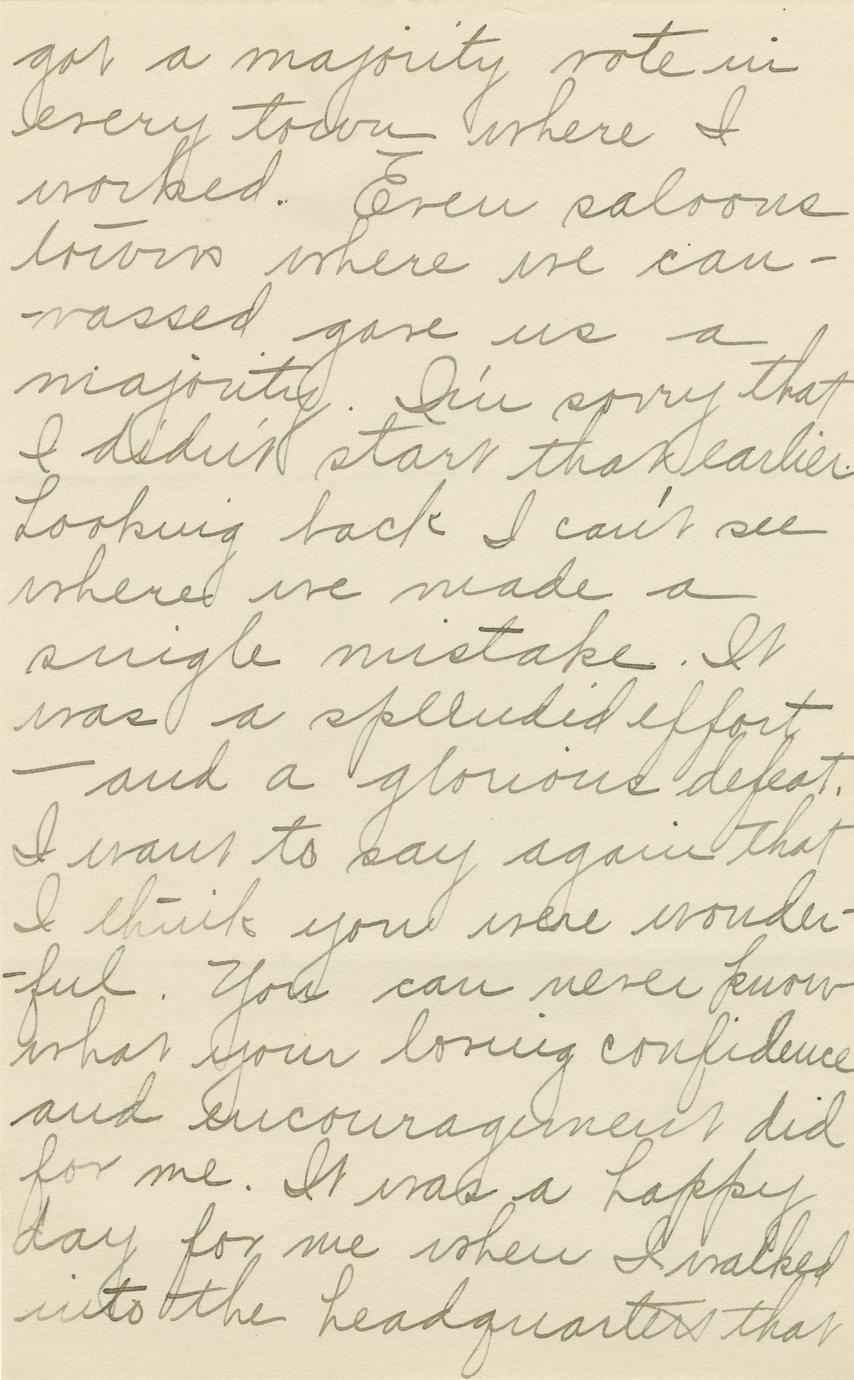 got a majority vote in
every town where I
worked. Even saloons
towns where we can-
-vassed gave us a
majority. I'm sorry that
I didn't start that earlier.
Looking back I can't see
where we made a
single mistake. It
was a splendid effort
— and a glorious defeat.
I want to say again that
I think you were wonder-
-ful. You can never know
what your loving confidence
and encouragement did
for me. It was a happy
day for me when I walked
into the headquarters that